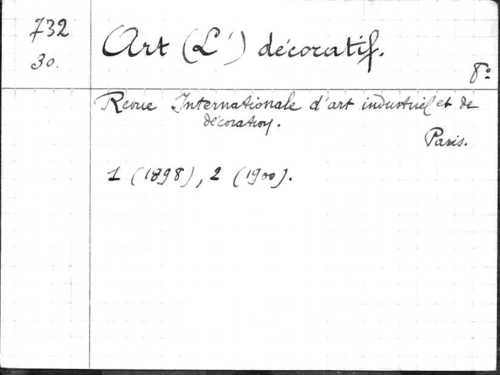 732
30.
Art (L') décoratif.
8°
Revue Internationale d'art industriel et de
décoration.
Paris.
1 (1898), 2 (1900).